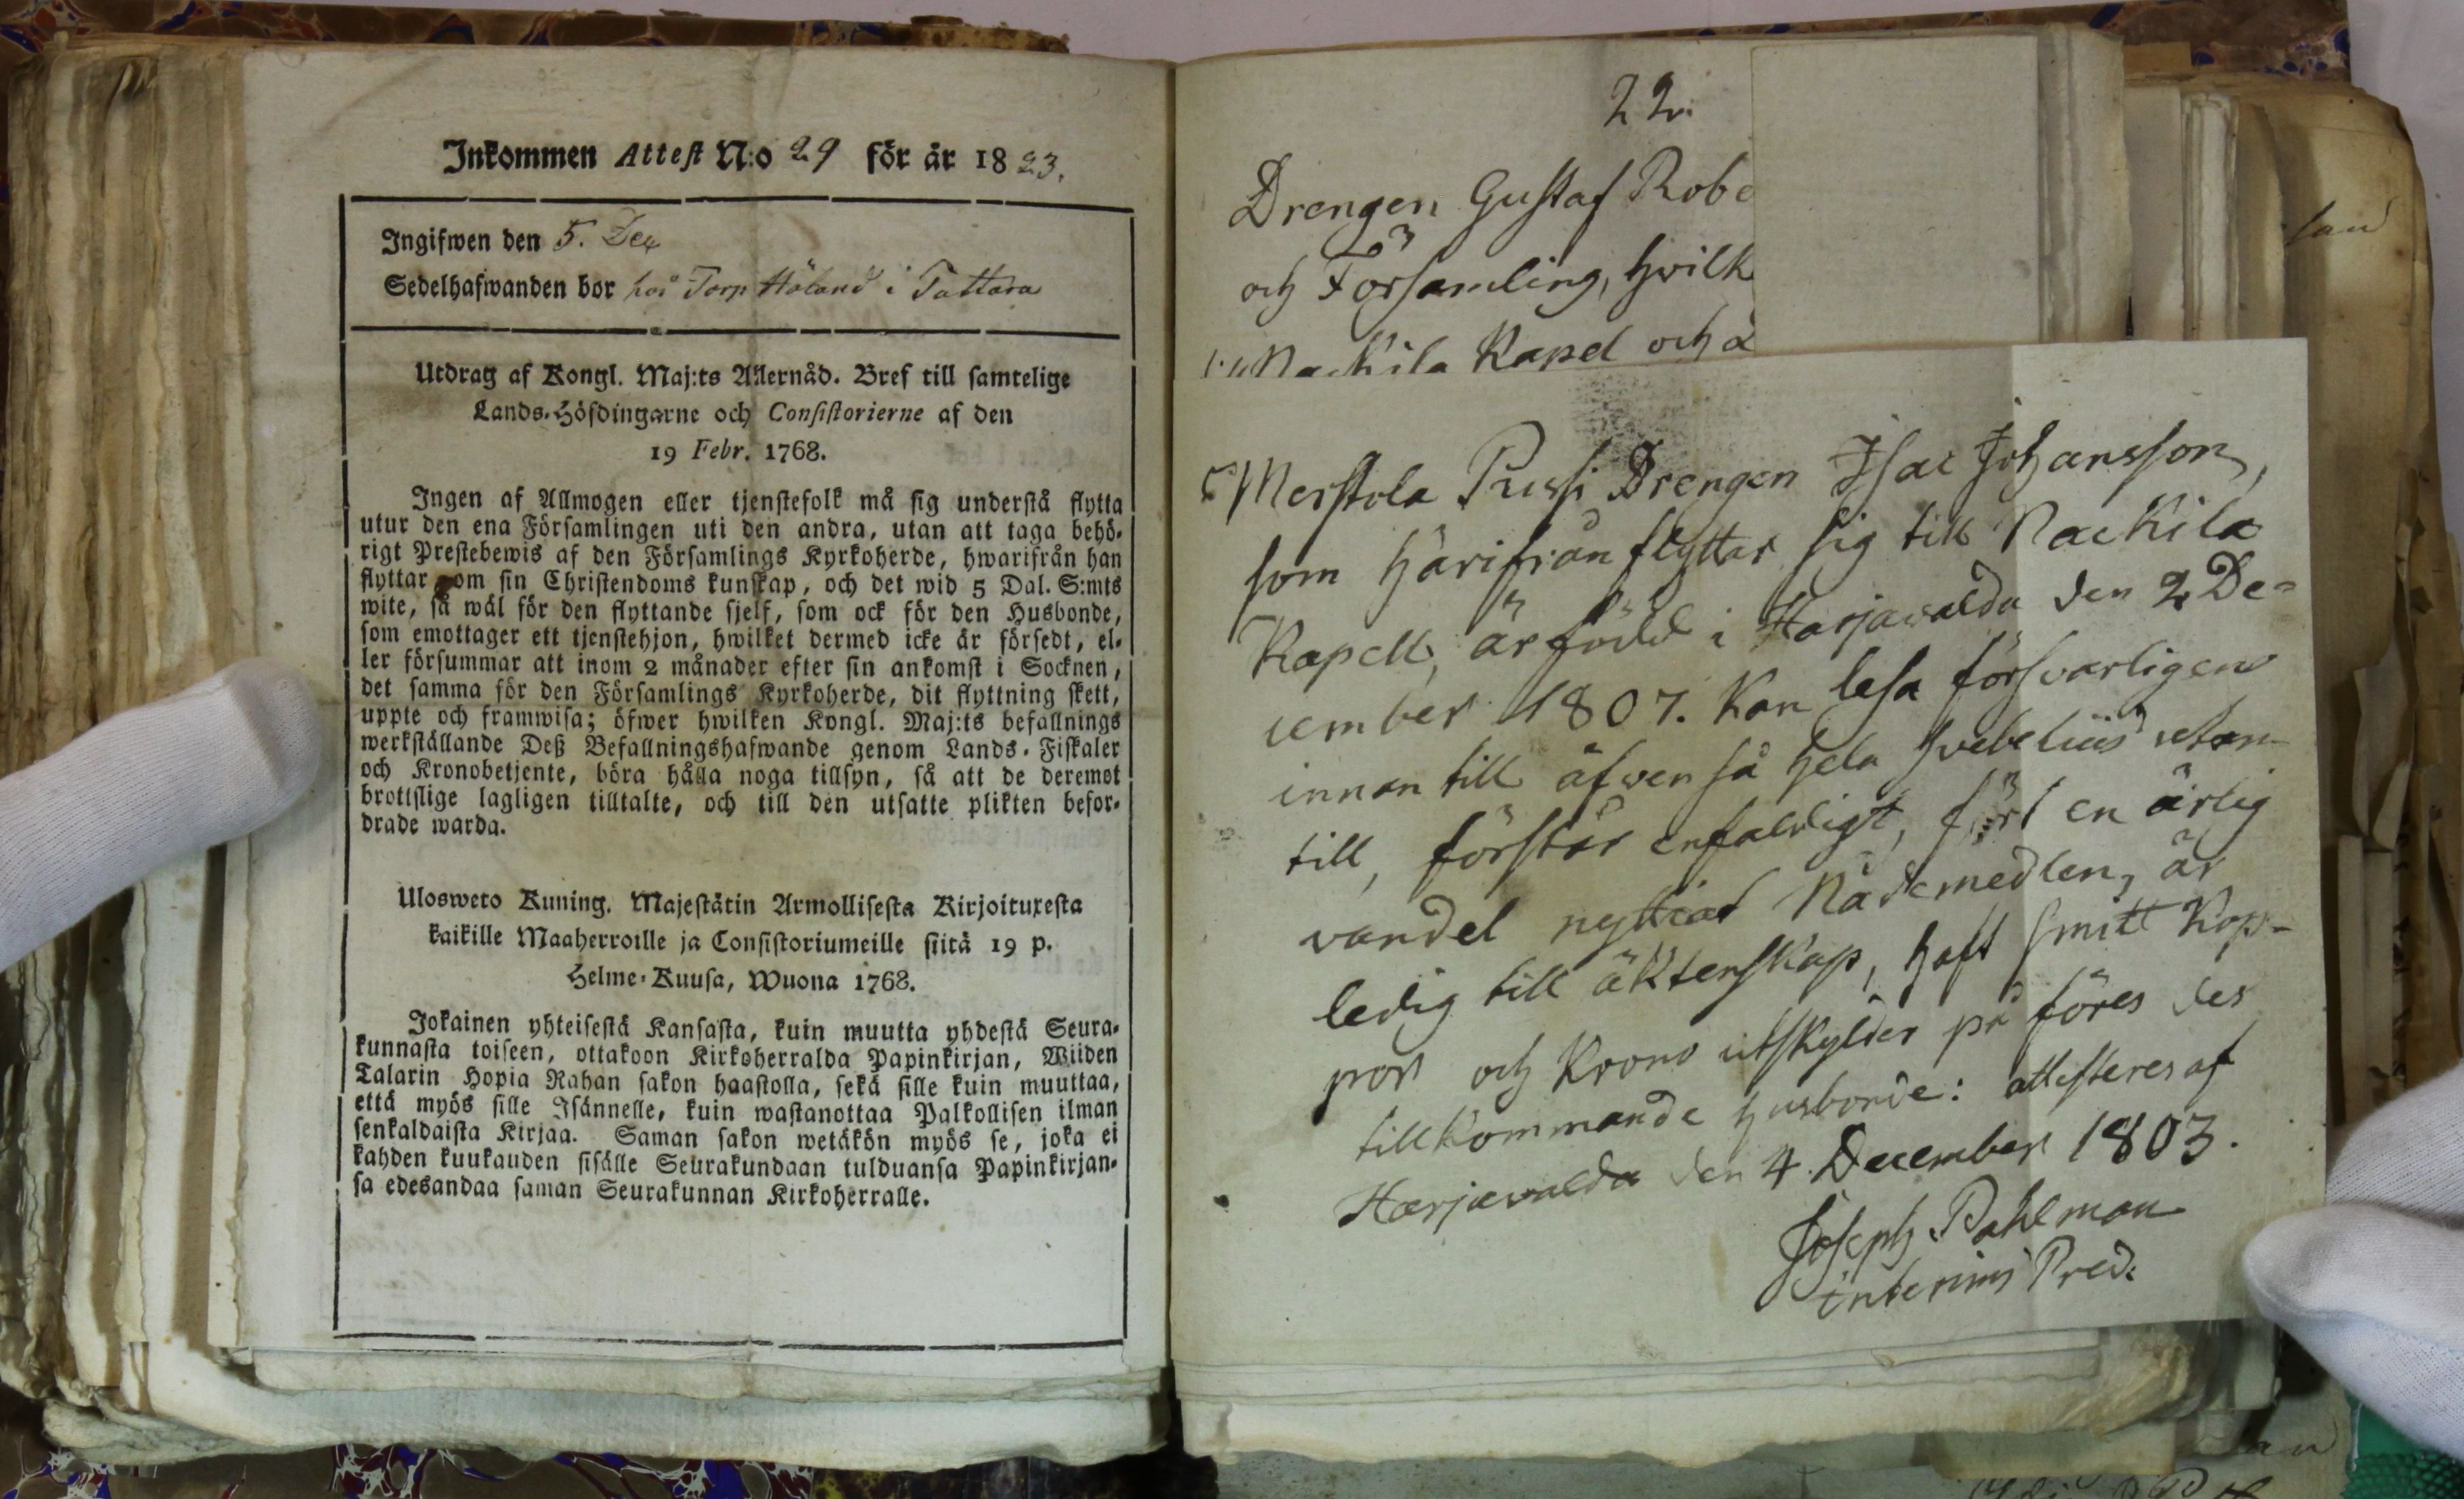 Inkommen Attest N:o 29 för år 1823.
Ingifwen den 5. Dec
Sedelhafwanden bor hos Torp Höland i Tattara
Utdrag af Kongl. Maj:ts Allernåd. Bref till samtelige
Lands-Höfdingarne och Consistorierne af den
19 Febr. 1768.
Ingen af Allmogen eller tjenstefolk må sig understå flytta
utur den ena Församlingen uti den andra, utan att taga behö-
rigt Prestebewis af den Församlings Kyrkoherde, hwarifrån han
flyttar om sin Christendoms kunskap, och det wid 5 Dal. S:mts
wite, så wäl för den flyttande sjelf, som ock för den Husbonde,
som emottager ett tjenstehjon, hwilket dermed icke är försedt, el-
ler försummar att inom 2 månader efter sin ankomst i Socknen,
det samma för den Församlings Kyrkoherde, dit flyttning skett,
uppte och framwisa; öfwer hwilken Kongl. Maj:ts befallnings
werkställande Deß Befallningshafwande genom Lands-Fiskaler
och Kronobetjente, böra hålla noga tillsyn, så att de deremot
brottslige lagligen tilltalte, och till den utsatte plikten befor-
drade warda.
Ulosweto Kuning. Majestätin Armollisesta Kirjoituxesta
kaikille Maaherroille ja Consistoriumeille siitä 19 p.
Helme-Kuusa, Wuona 1768.
Jokainen yhteisestä Kansasta, kuin muutta yhdestä Seura-
kunnasta toiseen, ottakoon Kirkoherralda Papinkirjan, Wiiden
Talarin Hopia Rahan sakon haastolla, sekä sille kuin muuttaa,
että myös sille Isännelle, kuin wastanottaa Palkollisen ilman
senkaldaista Kirjaa. Saman sakon wetäkön myös se, joka ei
kahden kuukauden sisälle Seurakundaan tulduansa Papinkirjan-
sa edesandaa saman Seurakunnan Kirkoherralle.
22.
Drengen Gustaf Robe
och Församling, hvilk
Nackila Kapel och
Merstola Pussi Drengen Isac Johansson,
som härifrån flyttar sig till Nackila
Kapell, är född i Harjavalda den 2 De-
cember 1807. Kan lesa försvarligen
innan till äfven så hela svebelius utan
till, förstår enfaldigt, fört en ärlig
vandel nyttiat Nådemedlen, är
ledig till äktenskap, haft smitt Kop-
por och Krono utskylder på föres des
tillkommande husbonde: attesteres af
Harjavalda den 4 December 1803.
Joseph Pahlman
interims Pred: